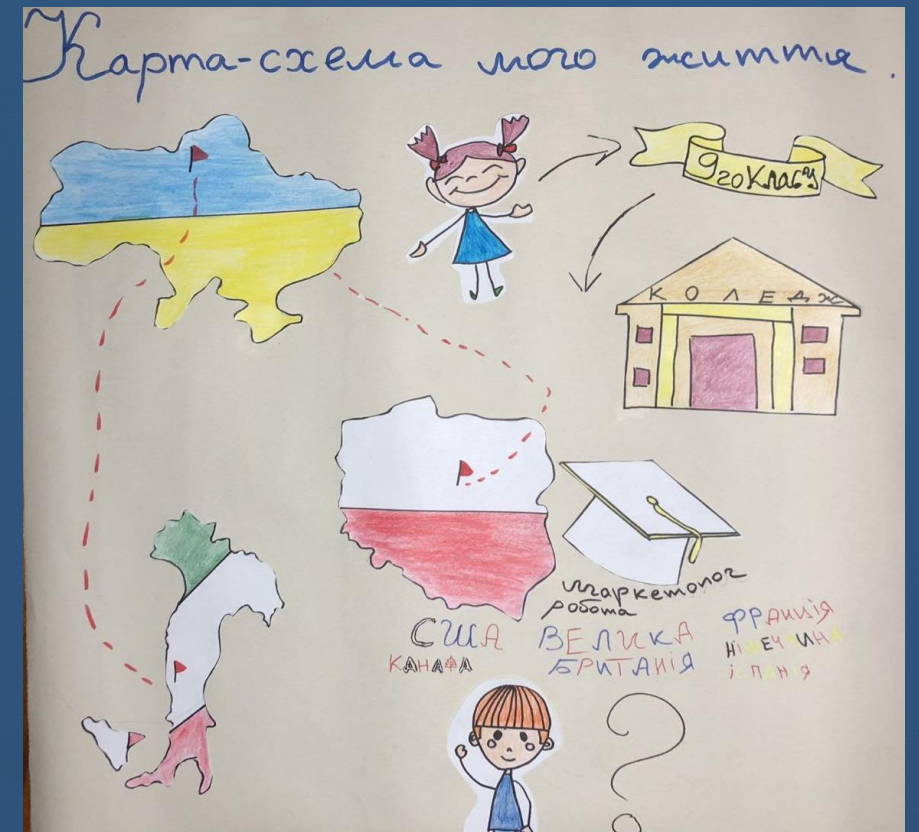 Карта-схема мого життя.
9го класу
КОЛЕДЖ
маркетолог
робота
США
КАНАДА
ВЕЛИКА
БРИТАНІЯ
ФРАНЦІЯ
НІМЕЧЧИНА
ІСПАНІЯ
?